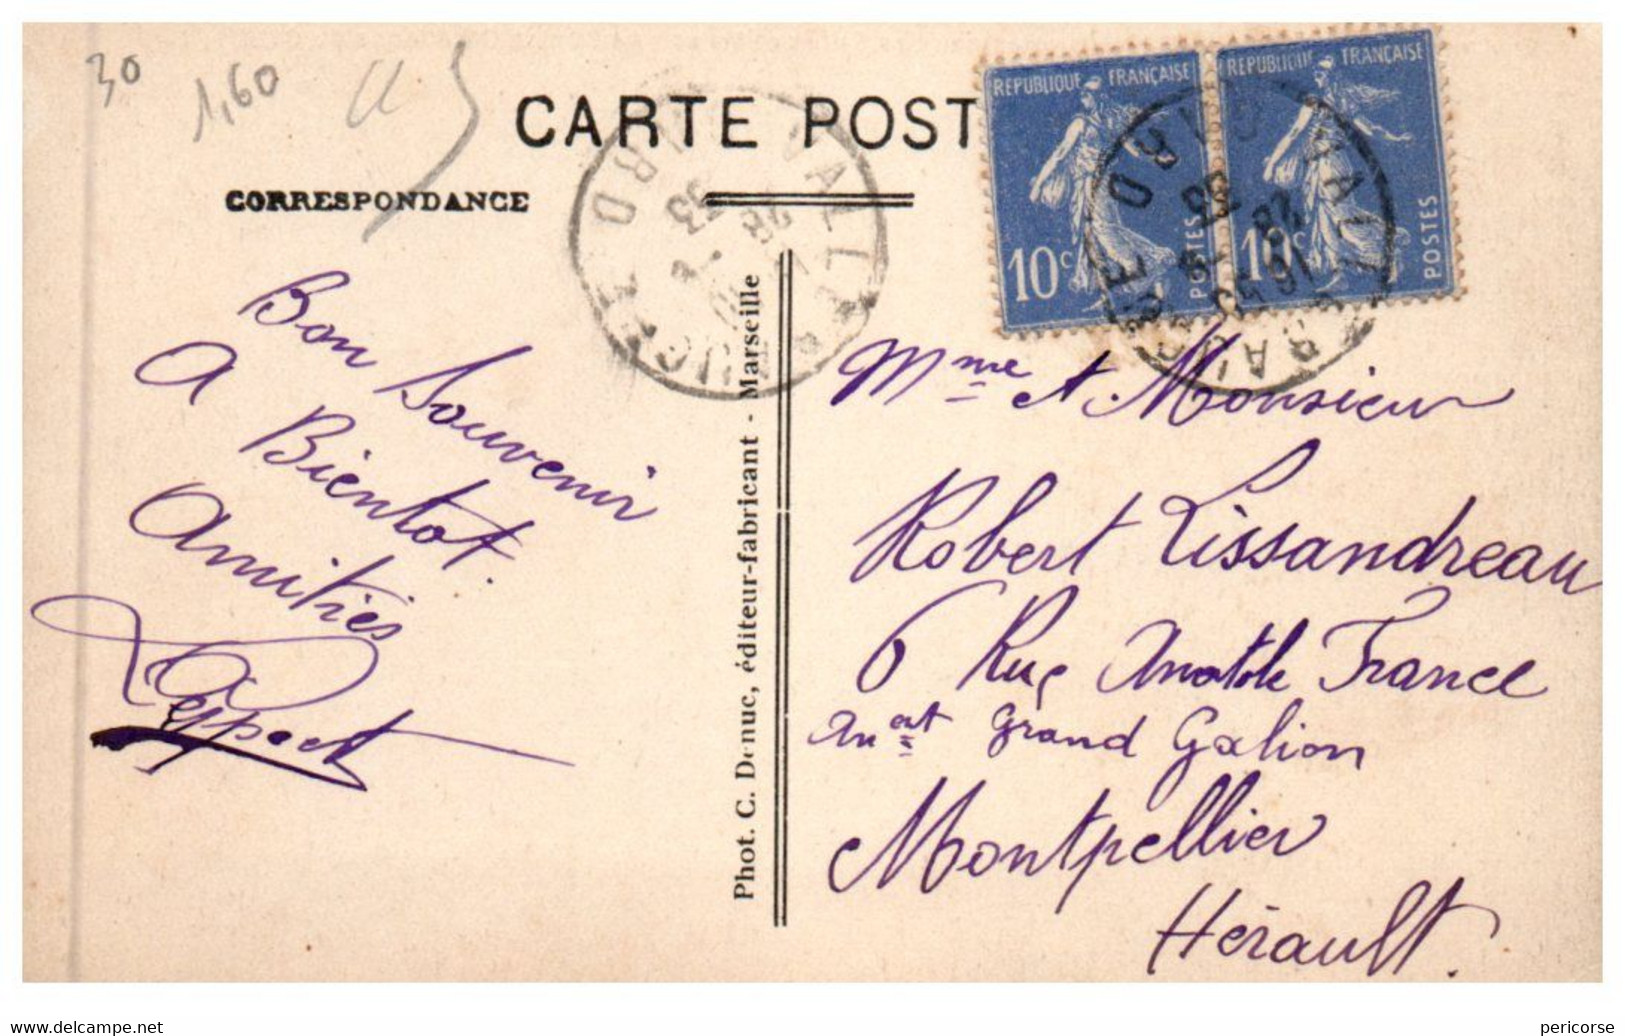 30
1,60
CARTE POST
CORRESPONDANCE
REPUBLIQUE FRANÇAISE
10c POSTES
REPUBLIQUE FRANÇAISE
10c POSTES
VALLAURIS
28
33
Bon Souvenir
A Bientot.
Amitiés
Phot. C. Denuc, éditeur-fabricant - Marseille
Mme et Monsieur
Robert Lissandreau
6 Rue Anatole France
Grand Galion
Montpellier
Hérault.
www.delcampe.net
pericorse